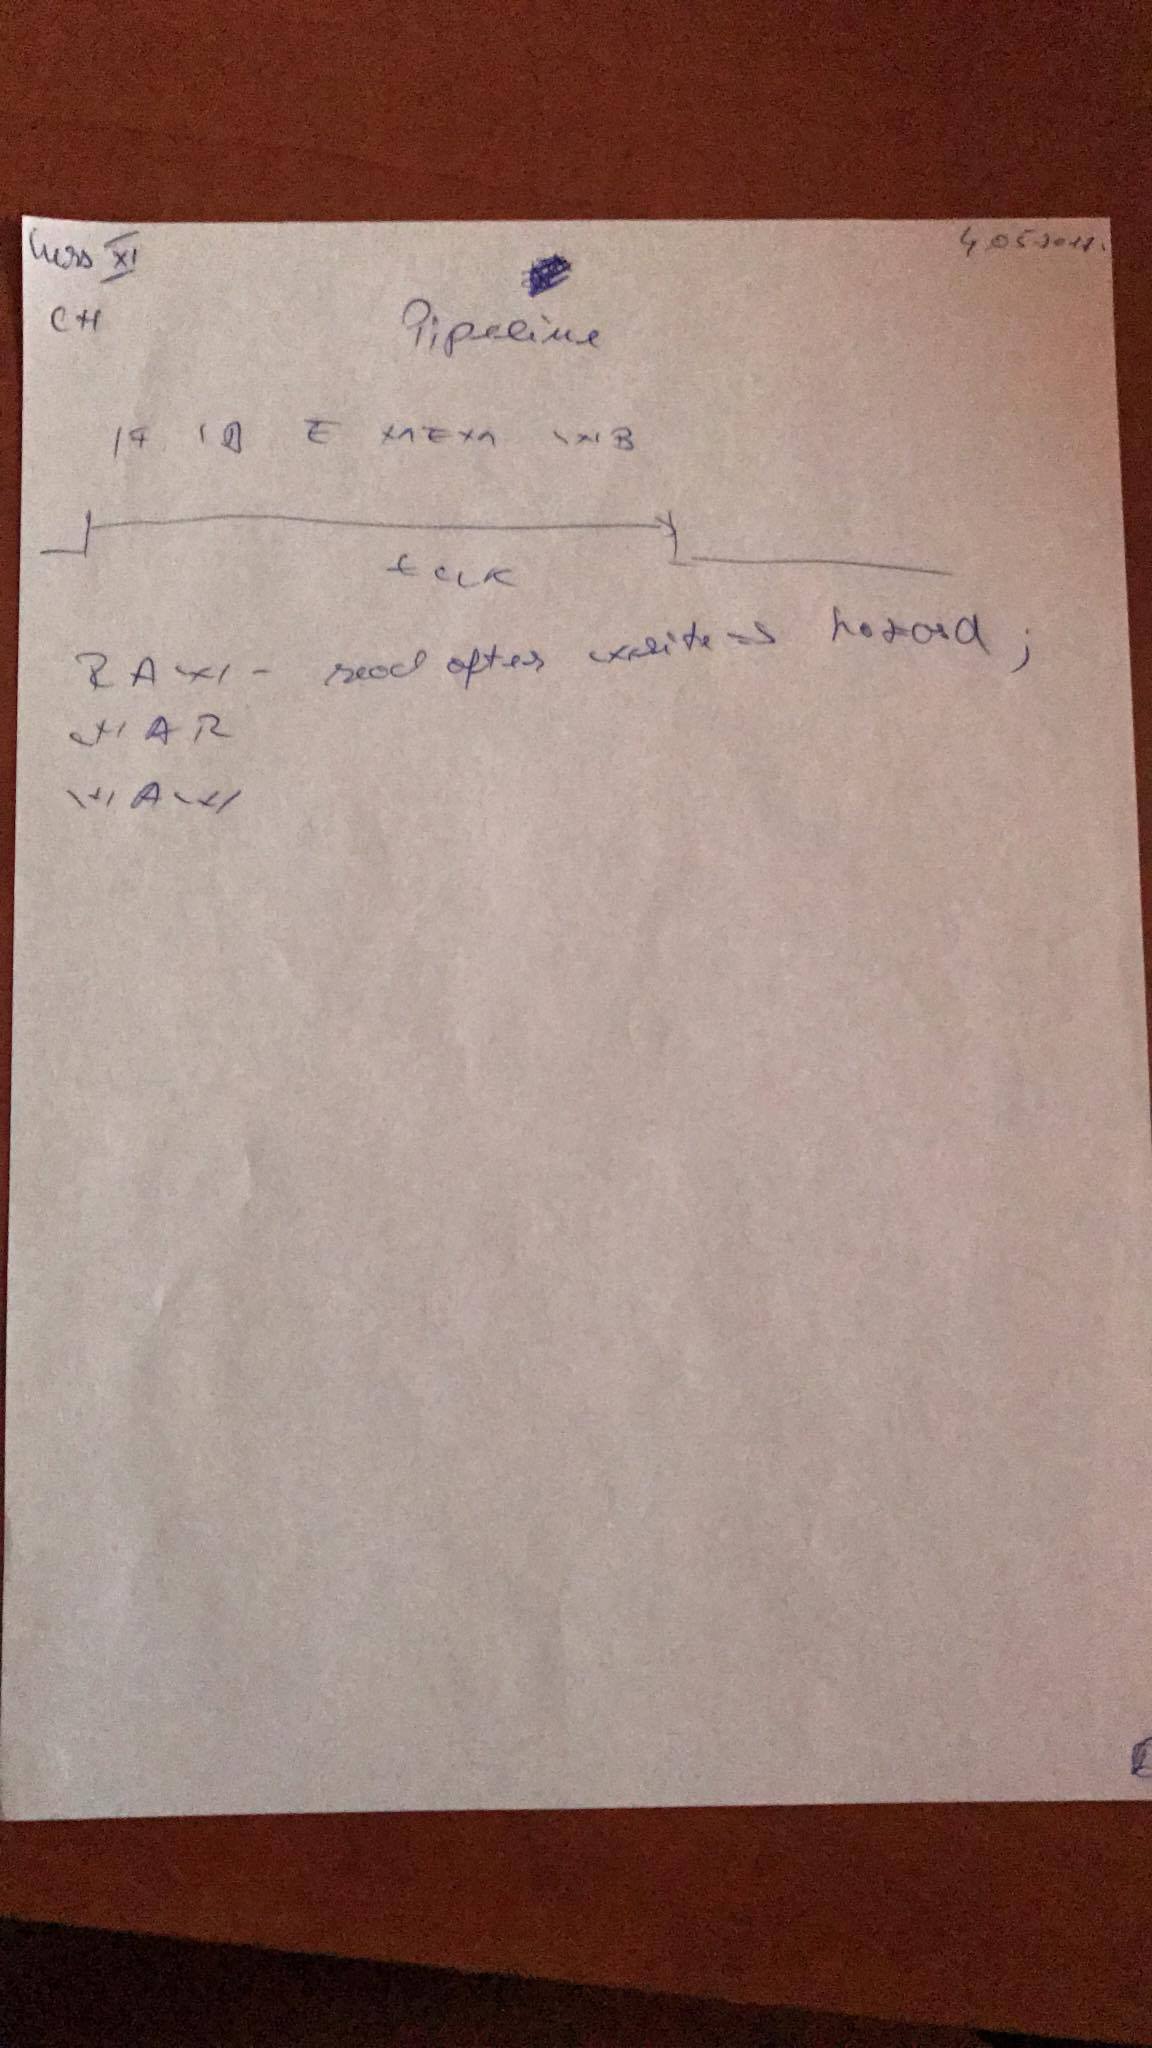 Curs XI
4.05.2018.
CH
Pipeline
IF ID E MEM WB
t CLK
RAW - read after write => hazard ;
WAR
WAW